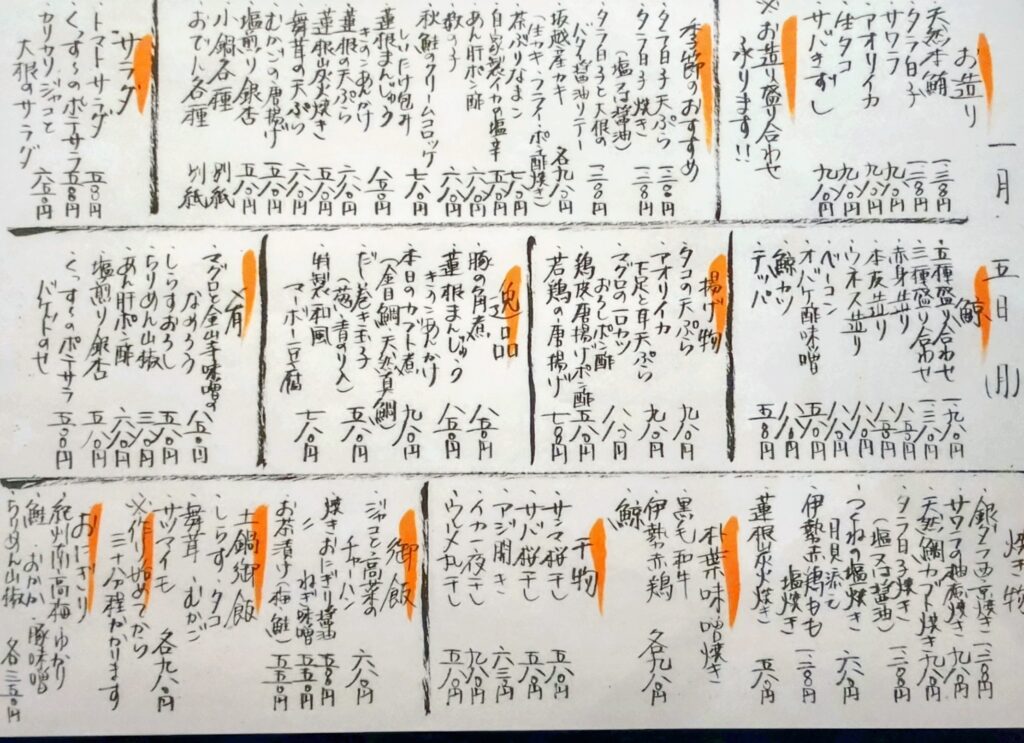 一月五日(月)
お造り
・天然本鮪 一二八〇円
・タラ白子 一二八〇円
・サワラ 九八〇円
・アオリイカ 九八〇円
・生タコ 九八〇円
・サバきずし 九八〇円
※お造り盛り合わせ
承ります!!
季節のおすすめ
・タラ白子天ぷら 一二八〇円
・タラ白子焼き 一二八〇円
(塩又は醤油)
・タラ白子と大根の
バター醤油ソテー 一二八〇円
・坂越産カキ 各九八〇円
(生カキ・フライ・ポン酢・焼き)
・茶ぶりなまこ 七八〇円
・自家製イカ塩辛 五八〇円
・あん肝ポン酢 六八〇円
・数の子 六八〇円
・秋鮭のクリームコロッケ 七八〇円
・しいたけ包み
蓮根まんじゅう
きのこあんかけ 八五〇円
・蓮根の天ぷら 六八〇円
・蓮根炭火焼き 五八〇円
・舞茸の天ぷら 六八〇円
・むかごの唐揚げ 五八〇円
・塩煎り銀杏 五八〇円
・小鍋各種 別紙
・おでん各種 別紙
サラダ
・トマトサラダ 五八〇円
・くんすけのポテサラ 五五〇円
・カリカリジャコと
大根のサラダ 六五〇円
鯨
・五種盛り合わせ 一九八〇円
・三種盛り合わせ 一三八〇円
・赤身造り 八五〇円
・本皮造り 八八〇円
・ウネス造り 八八〇円
・ベーコン 八八〇円
・オバケ酢味噌 五八〇円
・鯨カツ 八八〇円
・テッパ 五八〇円
揚げ物
・タコの天ぷら 九八〇円
・アオリイカ
下足と耳天ぷら 九八〇円
・マグロの一口カツ
おろしポン酢 八八〇円
・鶏皮唐揚げポン酢 五八〇円
・若鶏の唐揚げ 七五〇円
逸品
・豚の角煮 八五〇円
・蓮根まんじゅう
きのこあんかけ 八五〇円
・本日のカブト煮 九八〇円
(金目鯛・天然真鯛)
・だし巻き玉子 五八〇円
(葱・青のり入)
・特製和風
マーボー豆腐 七八〇円
〆肴
・マグロと金山寺味噌の
なめろう 八五〇円
・しらすおろし 五八〇円
・ちりめん山椒 三八〇円
・あん肝ポン酢 六八〇円
・塩煎り銀杏 五八〇円
・くんすけのポテサラ
バゲットのせ 五五〇円
焼き物
・銀ダラ西京焼き 一二八〇円
・サワラの柚庵焼き 九八〇円
・天然鯛カブト焼き 九八〇円
・タラ白子焼き 一二八〇円
(塩又は醤油)
・つくねの塩焼き
月見添え 六八〇円
・伊勢赤鶏もも
塩焼き 一二八〇円
・蓮根炭火焼き 五八〇円
朴葉味噌焼き
・黒毛和牛
・伊勢赤鶏
・鯨 各九八〇円
干物
・サンマ桜干し 五八〇円
・サバ桜干し 五八〇円
・アジ開き 六三〇円
・イカ一夜干し 九八〇円
・ウルメ丸干し 五八〇円
御飯
・ジャコと高菜の
チャーハン 六八〇円
・焼きおにぎり醤油 五五〇円
・〃 ねぎ味噌 五五〇円
・お茶漬け(梅・鮭) 五五〇円
土鍋御飯
・しらす・タコ
・舞茸・むかご
・サツマイモ 各九八〇円
※作り始めてから
三十分程かかります
おにぎり
・紀州南高梅・ゆかり
・鮭・おかか・豚味噌
・ちりめん山椒 各三五〇円